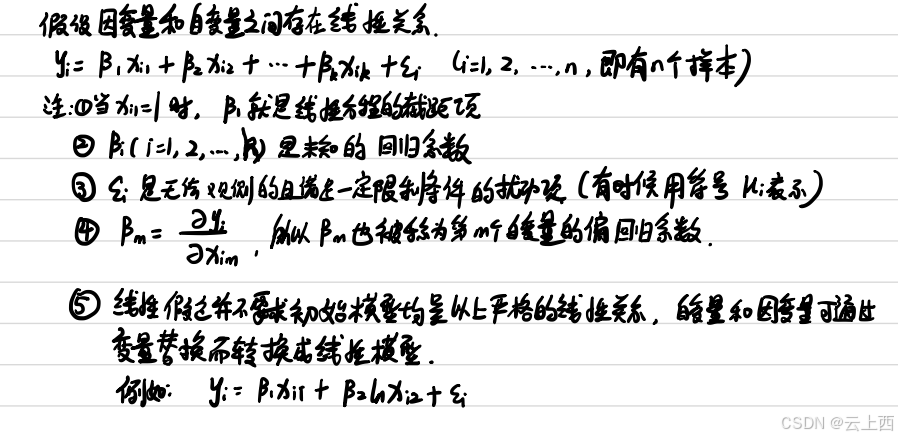 假设因变量和自变量之间存在线性关系.
yᵢ = β₁xᵢ₁ + β₂xᵢ₂ + ⋯ + βₖxᵢₖ + εᵢ (i=1, 2, ⋯, n, 即有n个样本)
注:①当xᵢ₁=1时, β₁就是线性方程的截距项
② βᵢ(i=1, 2, ..., k) 是未知的回归系数
③ εᵢ是无法观测的且满足一定限制条件的扰动项 (有时候用符号 μᵢ表示)
④ βₘ = ∂yᵢ/∂xᵢₘ, 所以βₘ也被称为第m个自变量的偏回归系数.
⑤ 线性假设并不要求初始模型均呈以上严格的线性关系, 自变量和因变量可通过
变量替换而转换成线性模型.
例如: yᵢ = β₁xᵢ₁ + β₂lnxᵢ₂ + εᵢ
CSDN @云上西